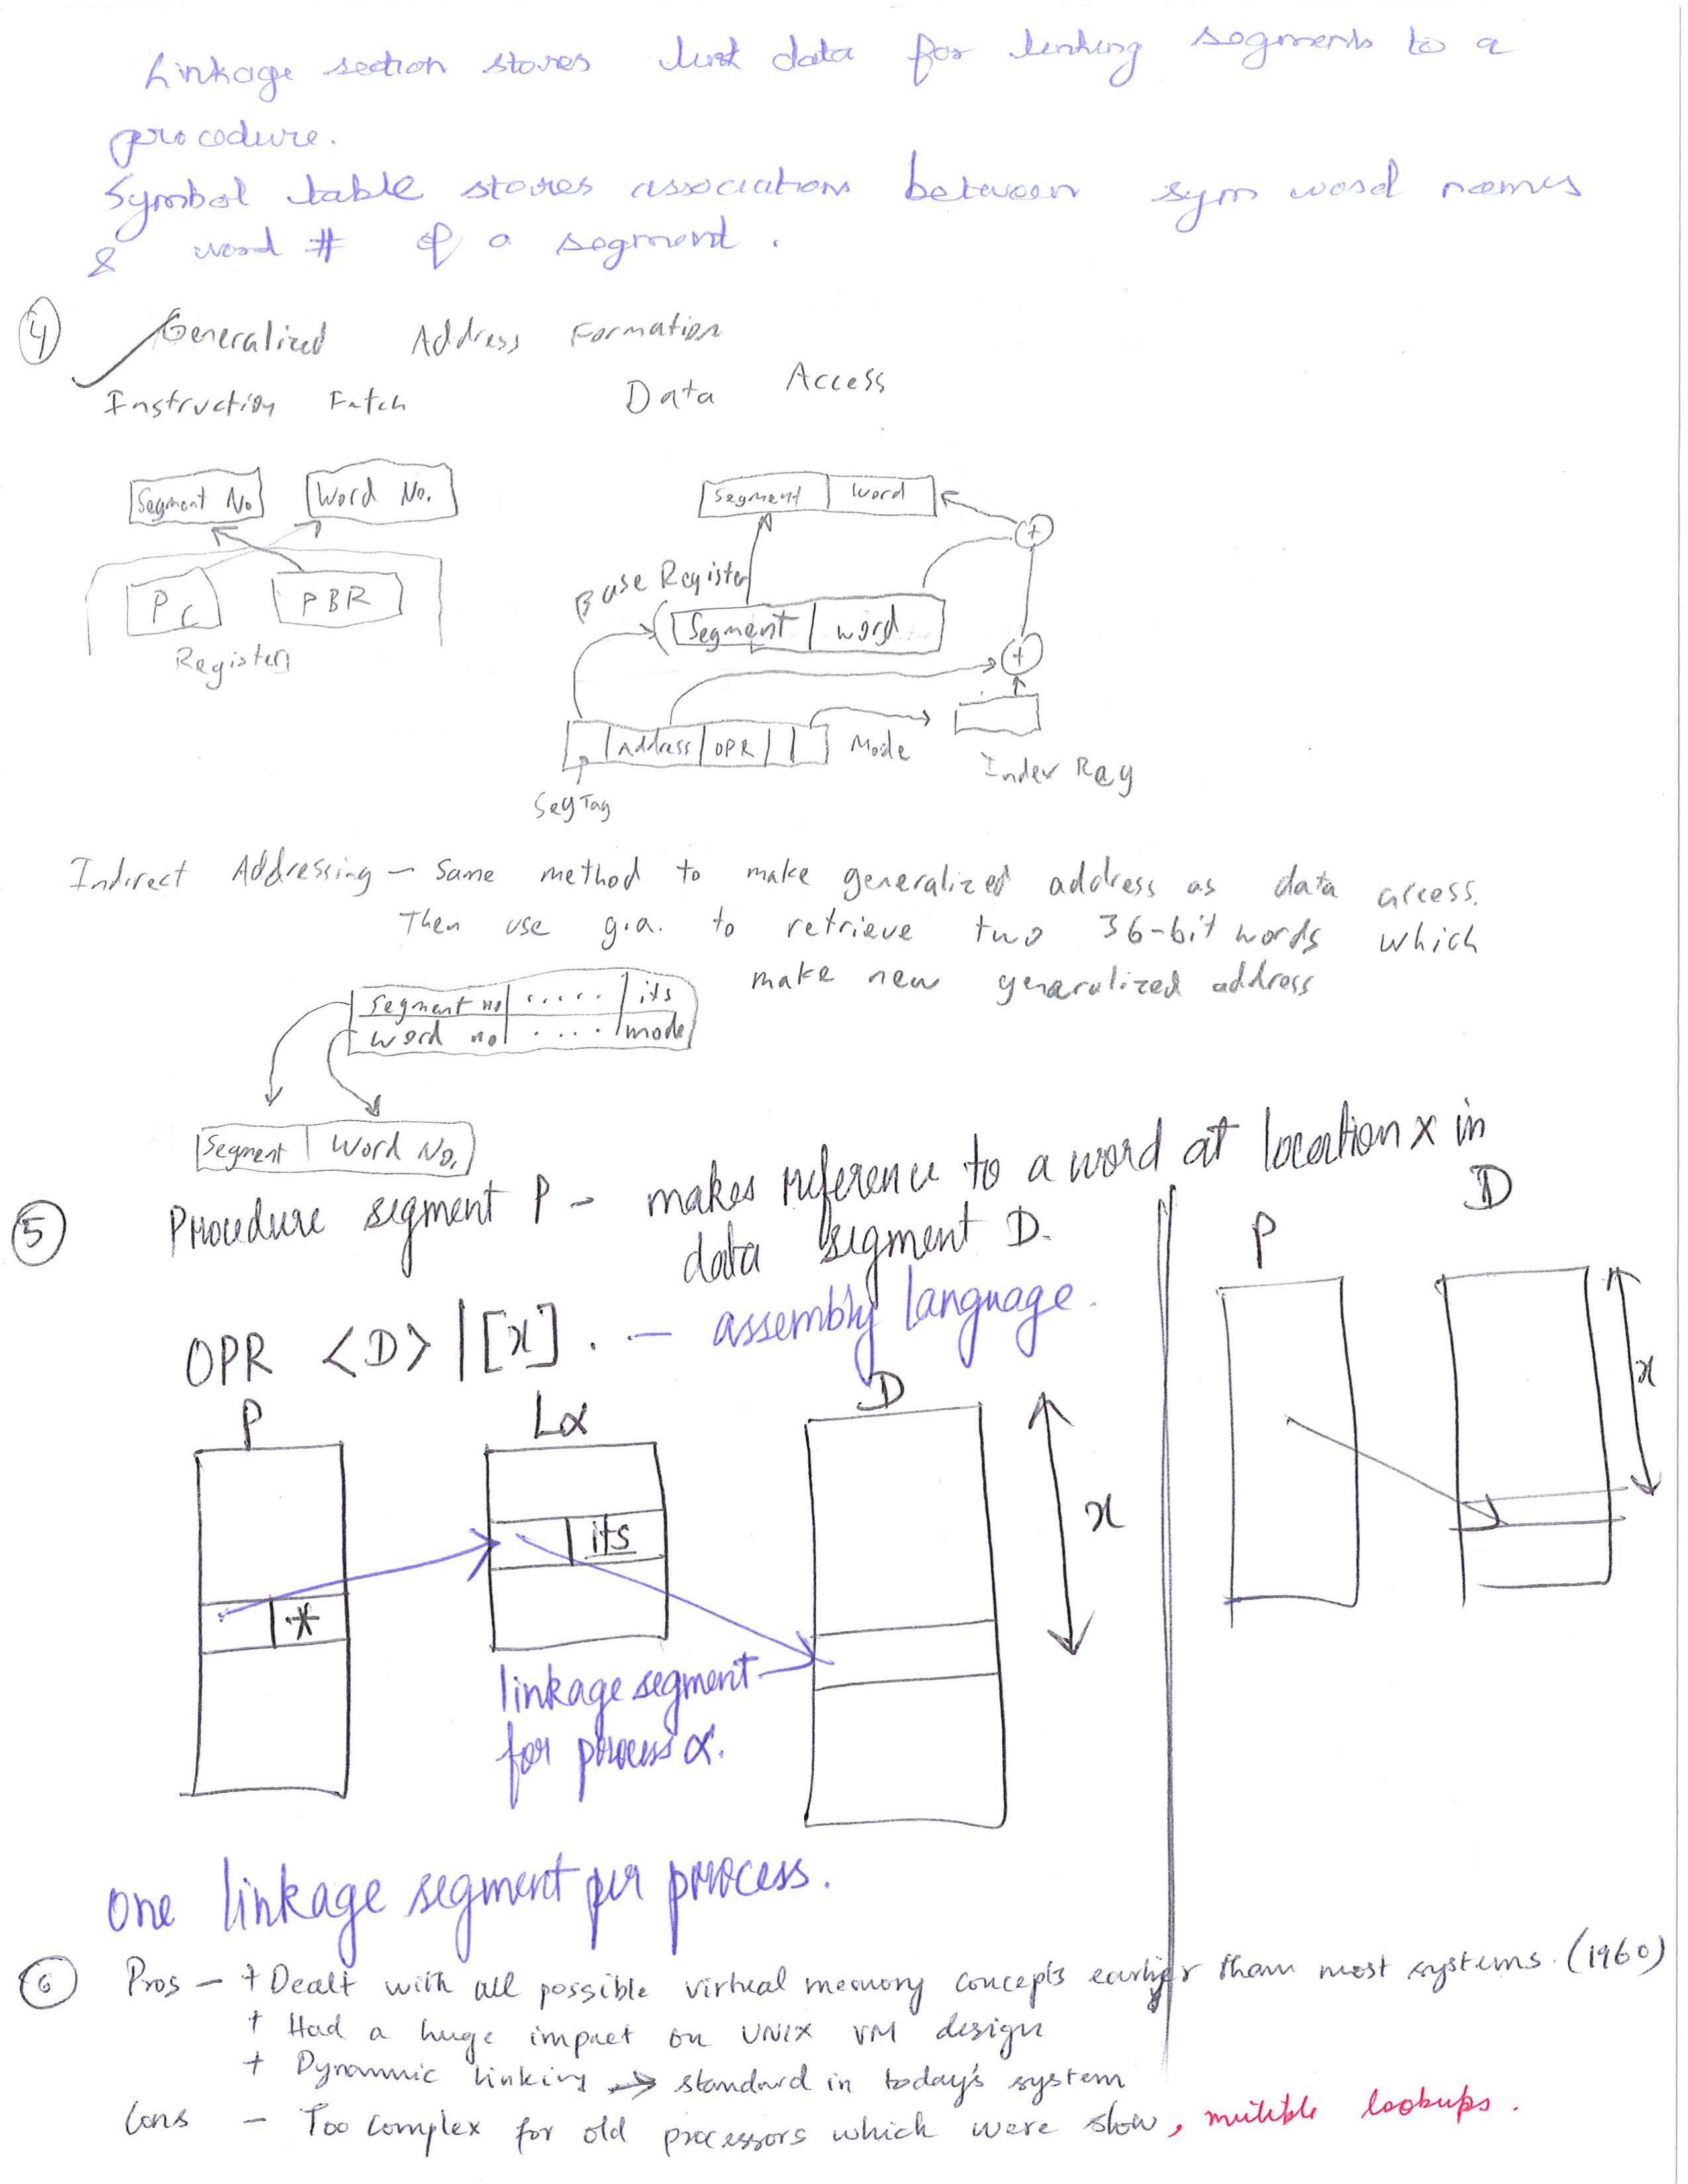 Linkage section stores link data for linking segments to a
procedure.
Symbol table stores associations between sym word names
& word # of a segment.
④ Generalized Address Formation
Instruction Fetch Data Access
Segment No Word No.
PC PBR
Registers
Segment word
Base Register
Segment word
+
+
Address OPR Mode
Index Reg
Seg Tag
Indirect Addressing - Same method to make generalized address as data access.
Then use g.a. to retrieve two 36-bit words which
make new generalized address
Segment no ..... its
word no .... mode
Segment Word No.
⑤ Procedure segment P - makes reference to a word at location x in
data segment D.
OPR <D>|[x]. - assembly language.
P Lα D
x
its
*
linkage segment
for process α.
P D
x
one linkage segment per process.
⑥ Pros - + Dealt with all possible virtual memory concepts earlier than most systems. (1960)
+ Had a huge impact on UNIX VM design
+ Dynamic linking → standard in today's system
Cons - Too complex for old processors which were slow, multiple lookups.